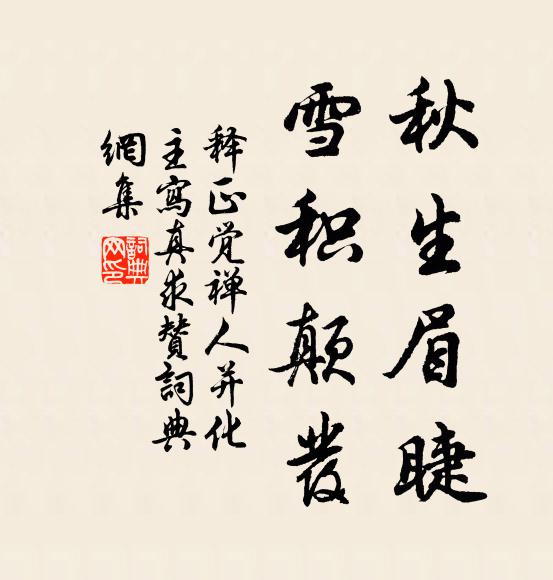 秋生眉睫
雪积颠发
释正觉禅人并化
主写真求赞词典
網集
詞典網印